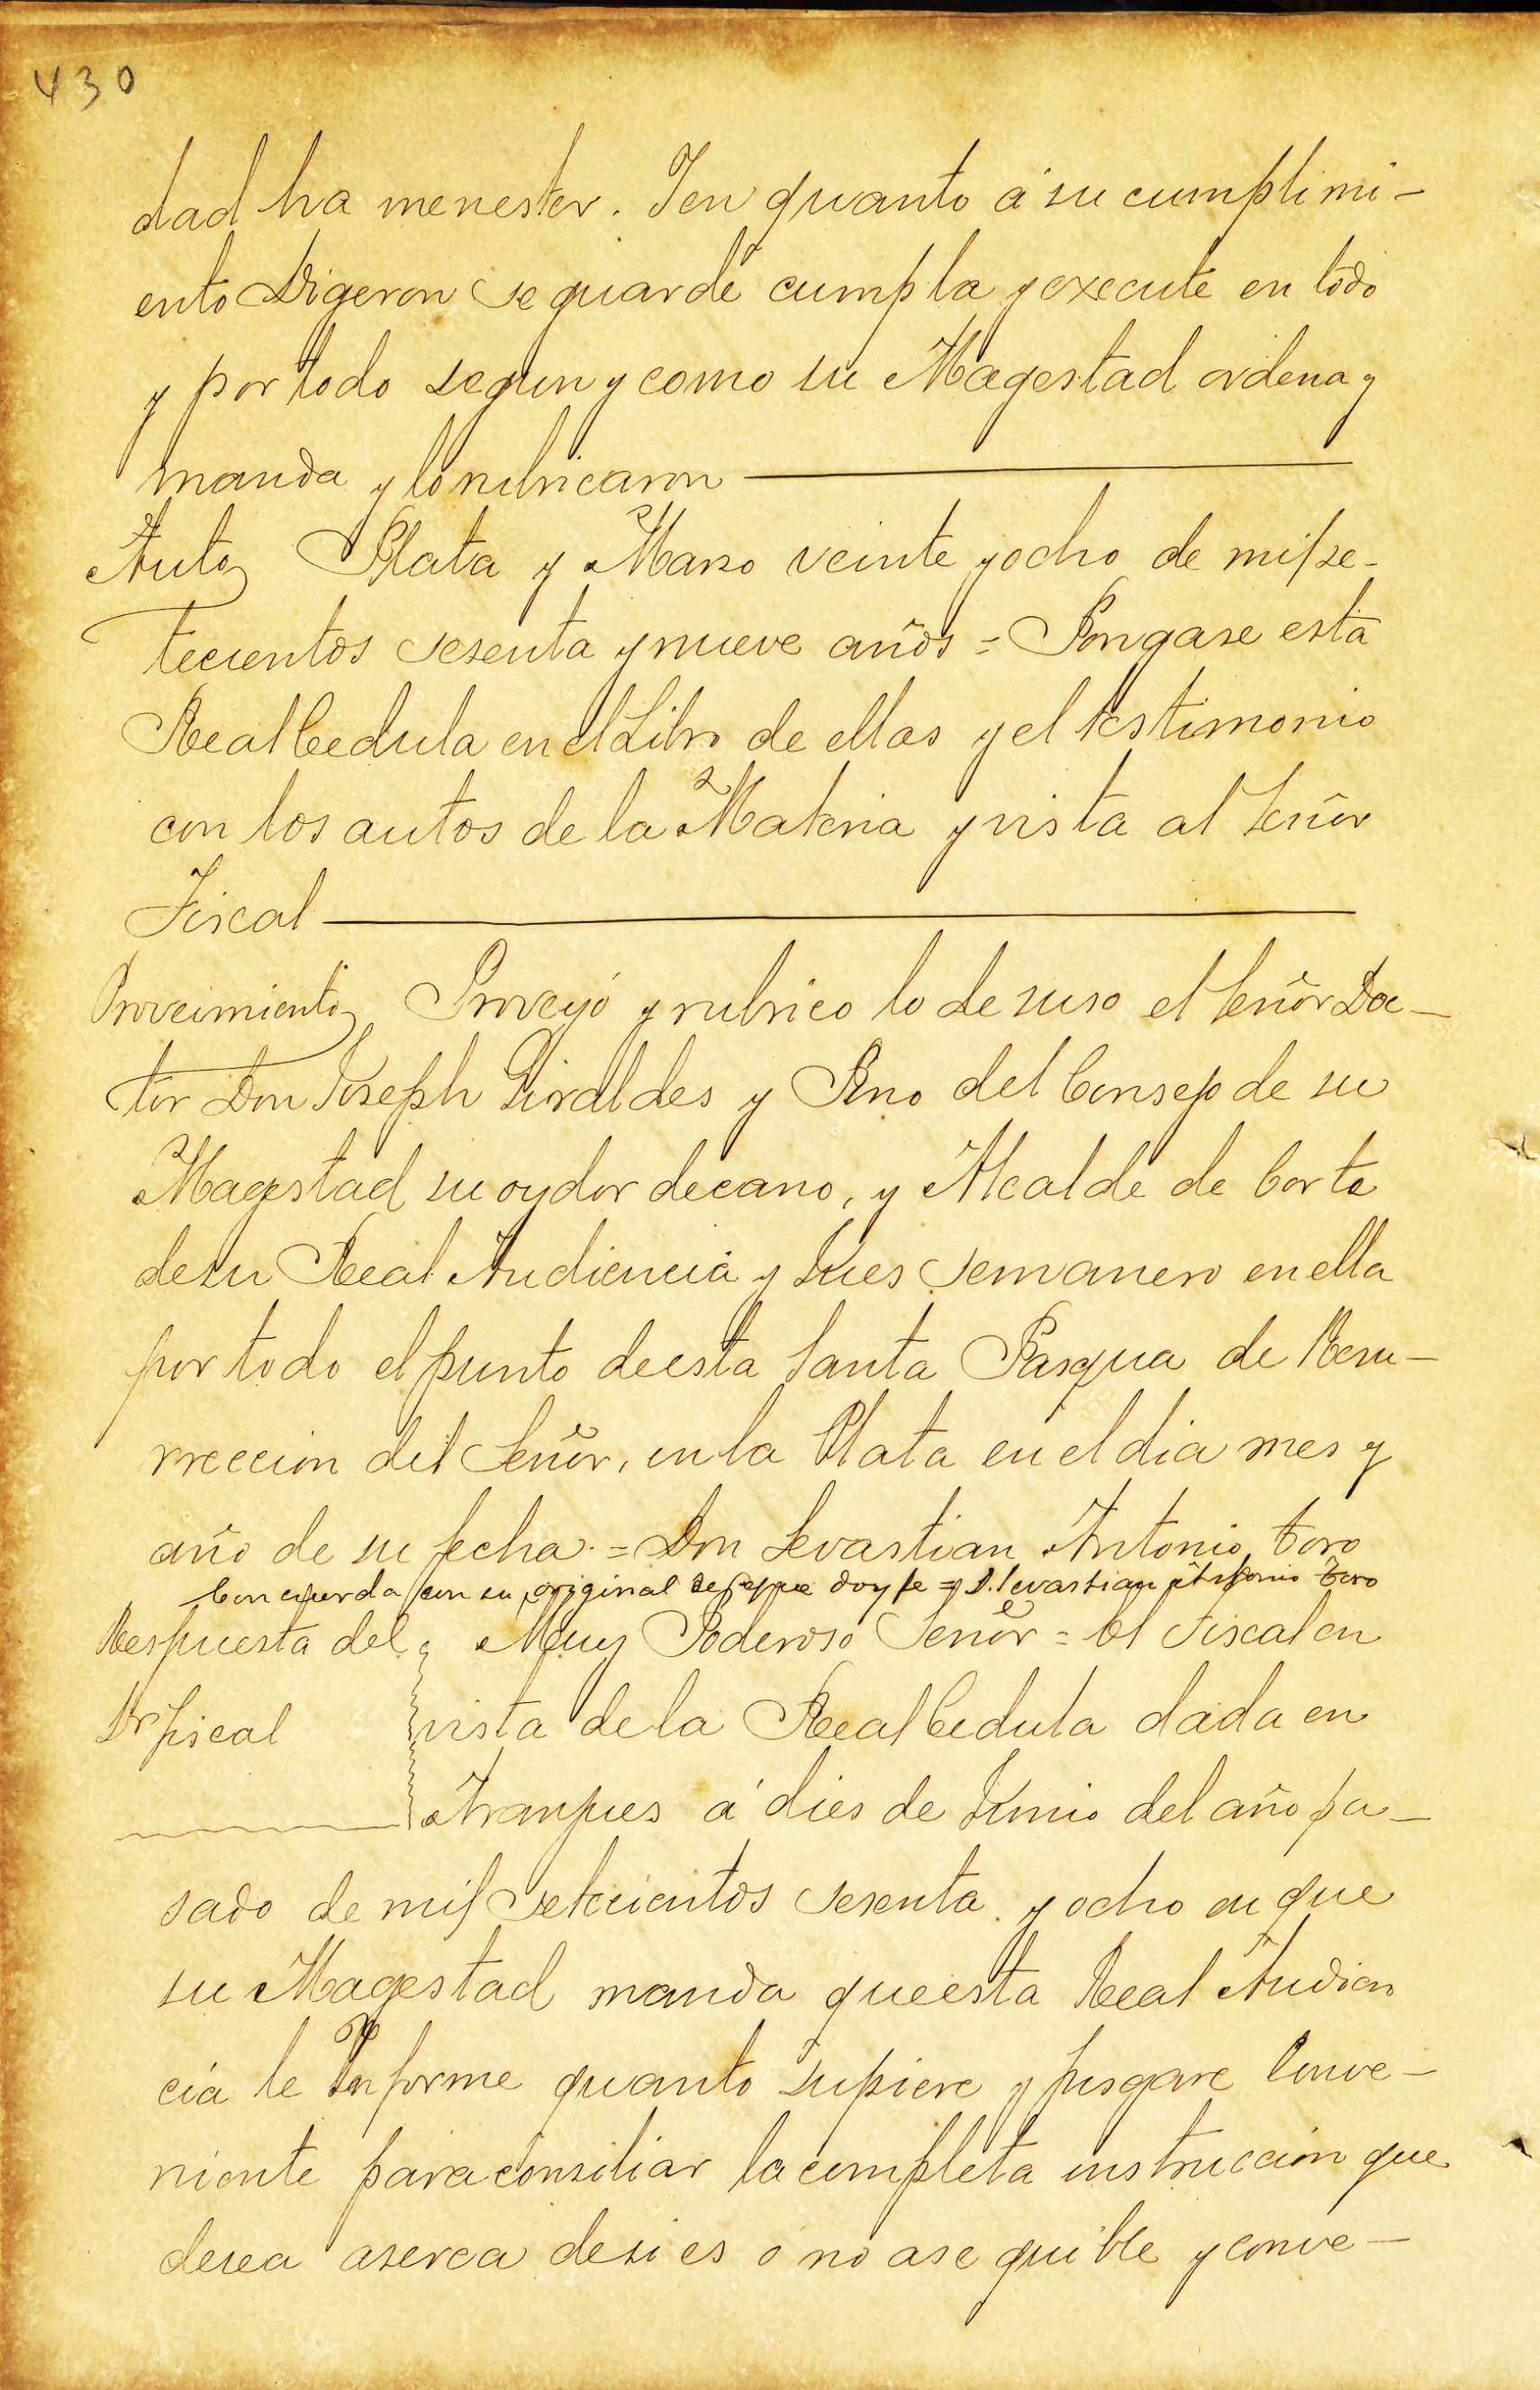 430
dad ha menester. Y en quanto á su cumplimi-
ento Digeron se guarde cumpla y execute en todo
y por todo segun y como su Magestad ordena y
manda y lo rubricaron
Auto Plata y Marso veinte y ocho de mil se-
tecientos sesenta y nueve años = Pongase esta
Real Cedula en el Libro de ellas y el testimonio
con los autos de la Materia y vista al Señor
Fiscal
Proveimiento Proveyó y rubrico lo de suso el Señor Doc-
tor Don Joseph Giraldes y Pino del Consejo de su
Magestad su oydor decano, y Alcalde de Corte
de su Real Audiencia y Jues semanero en ella
por todo el punto de esta Santa Pasqua de Resu-
rreccion del Señor, en la Plata en el dia mes y
año de su fecha. = Don Sevastian Antonio Toro
Concuerda con su original de que doy fe = D. Sevastian Antonio Toro
Respuesta del Muy Poderoso Señor = El Fiscal en
Sr fiscal vista de la Real Cedula dada en
Aranjues á dies de Junio del año pa-
sado de mil setecientos sesenta y ocho en que
su Magestad manda que esta Real Audien
cia le Informe quanto supiere y jusgare Conve-
niente para consiliar la completa instruccion que
desea aserca de si es ó no asequible y conve-